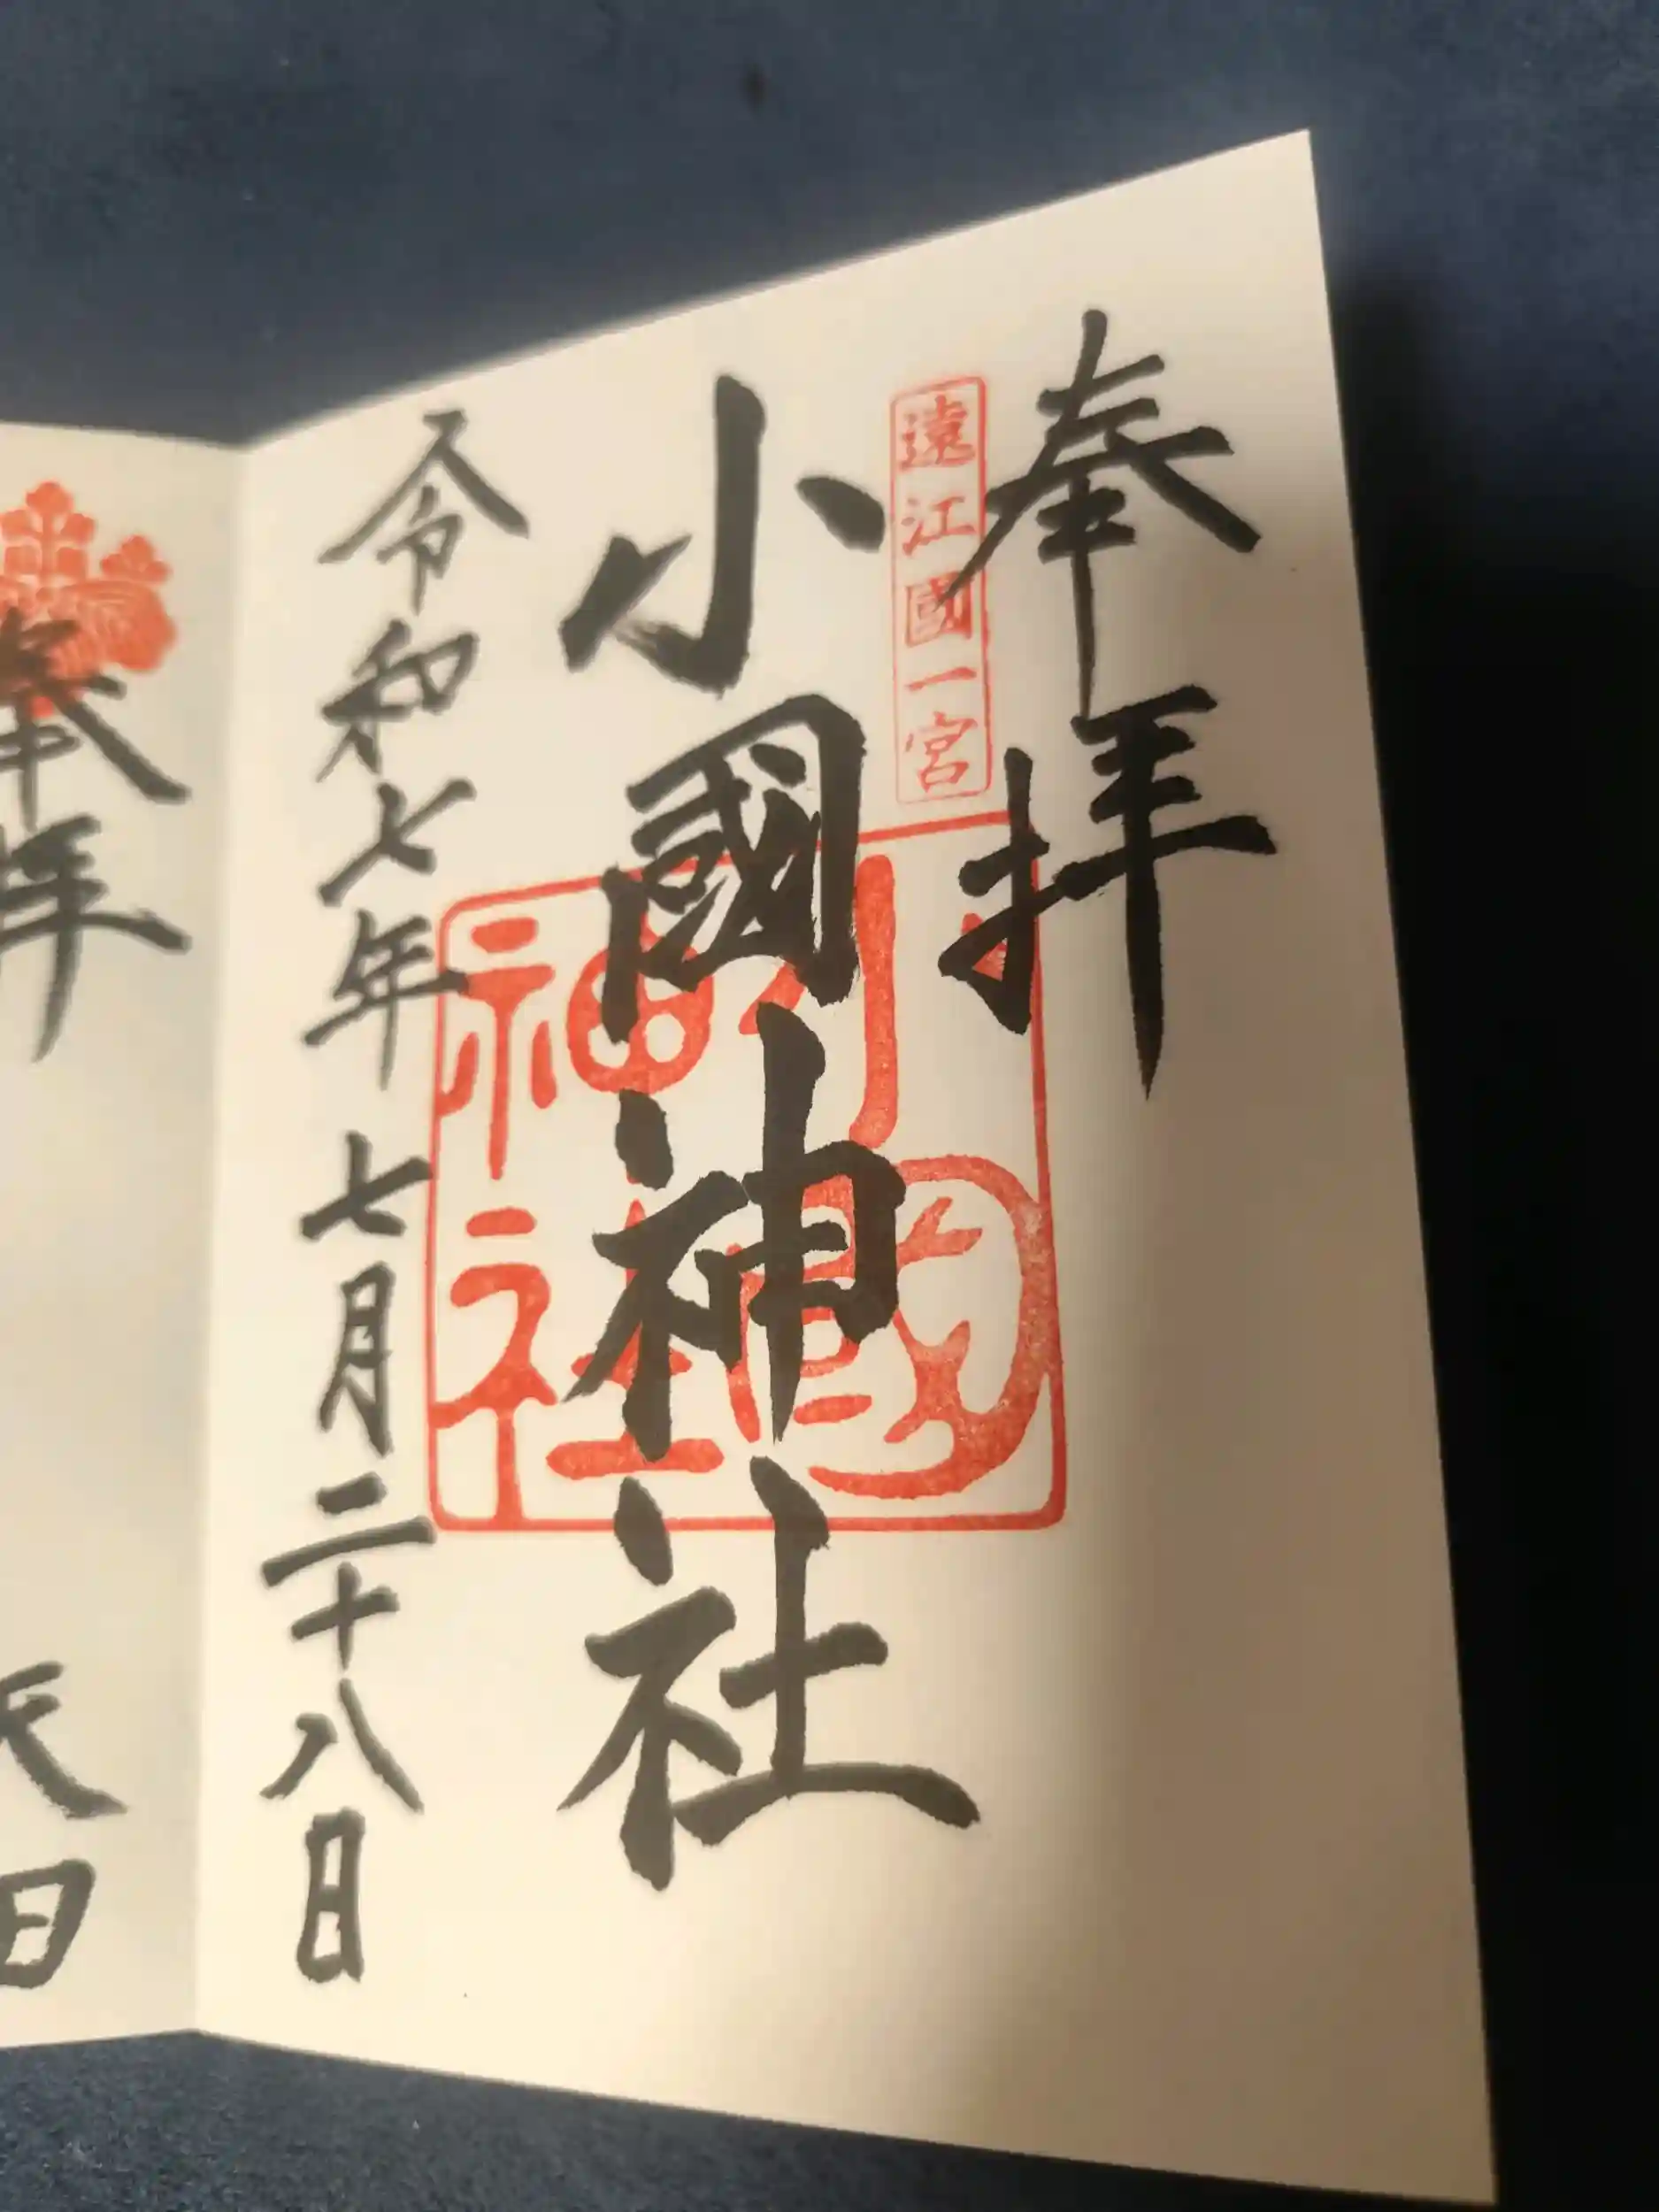 奉拝
遠江國一宮
小國神社
小國神社
令和七年七月二十八日
奉拝